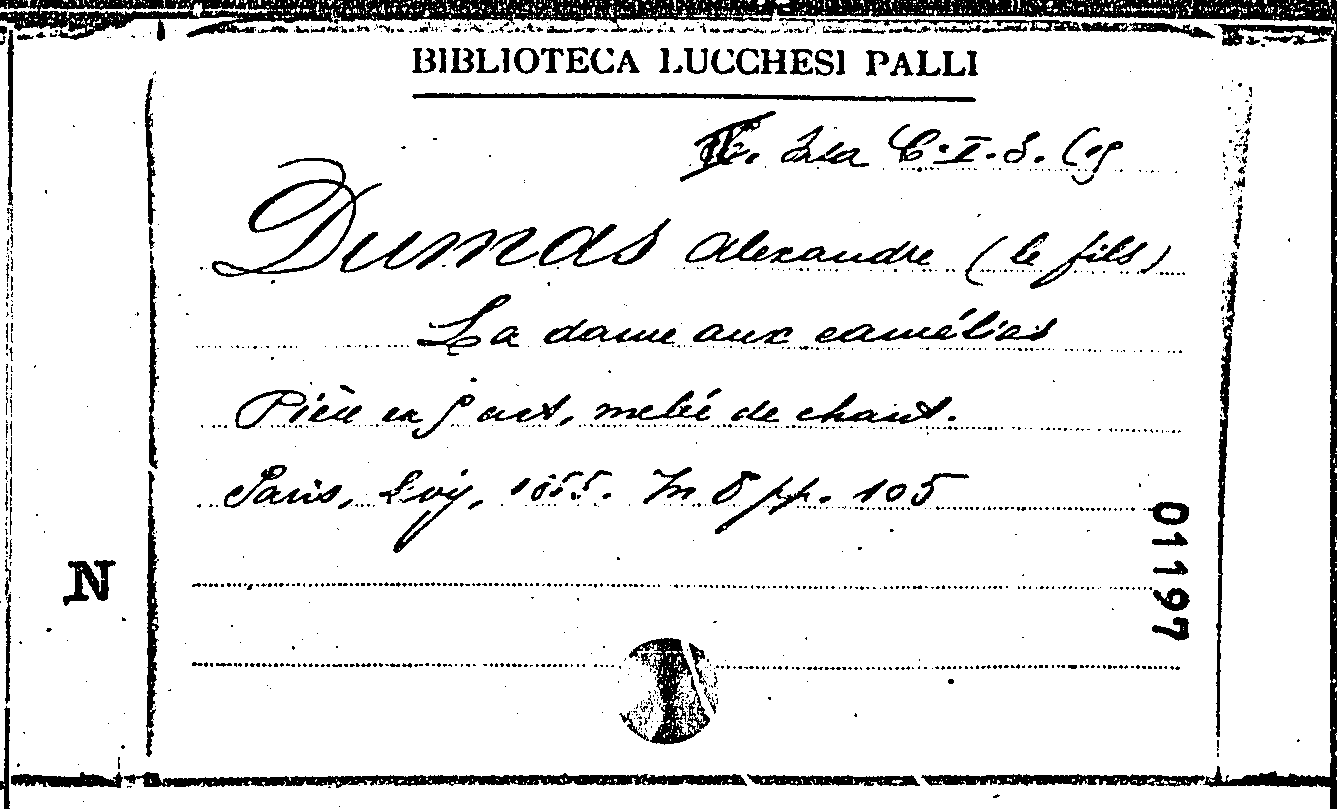 BIBLIOTECA LUCCHESI PALLI
Sala C. I. S. (9
Dumas Alexandre (le fils)
La dame aux camélias
Pièce en 5 act, melée de chant.
Paris, Levy, 1855. In 8 pp. 105
01197
N